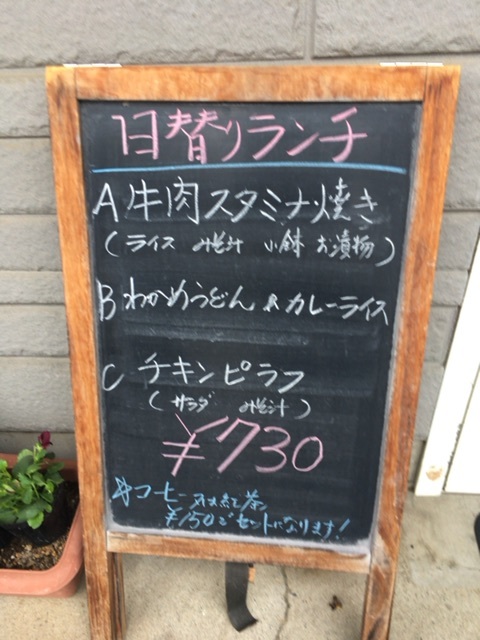 日替りランチ
A 牛肉スタミナ焼き
(ライス みそ汁 小鉢 お漬物)
B わかめうどん & カレーライス
C チキンピラフ
(サラダ みそ汁)
¥730
☆コーヒー又は紅茶
¥150でセットになります!